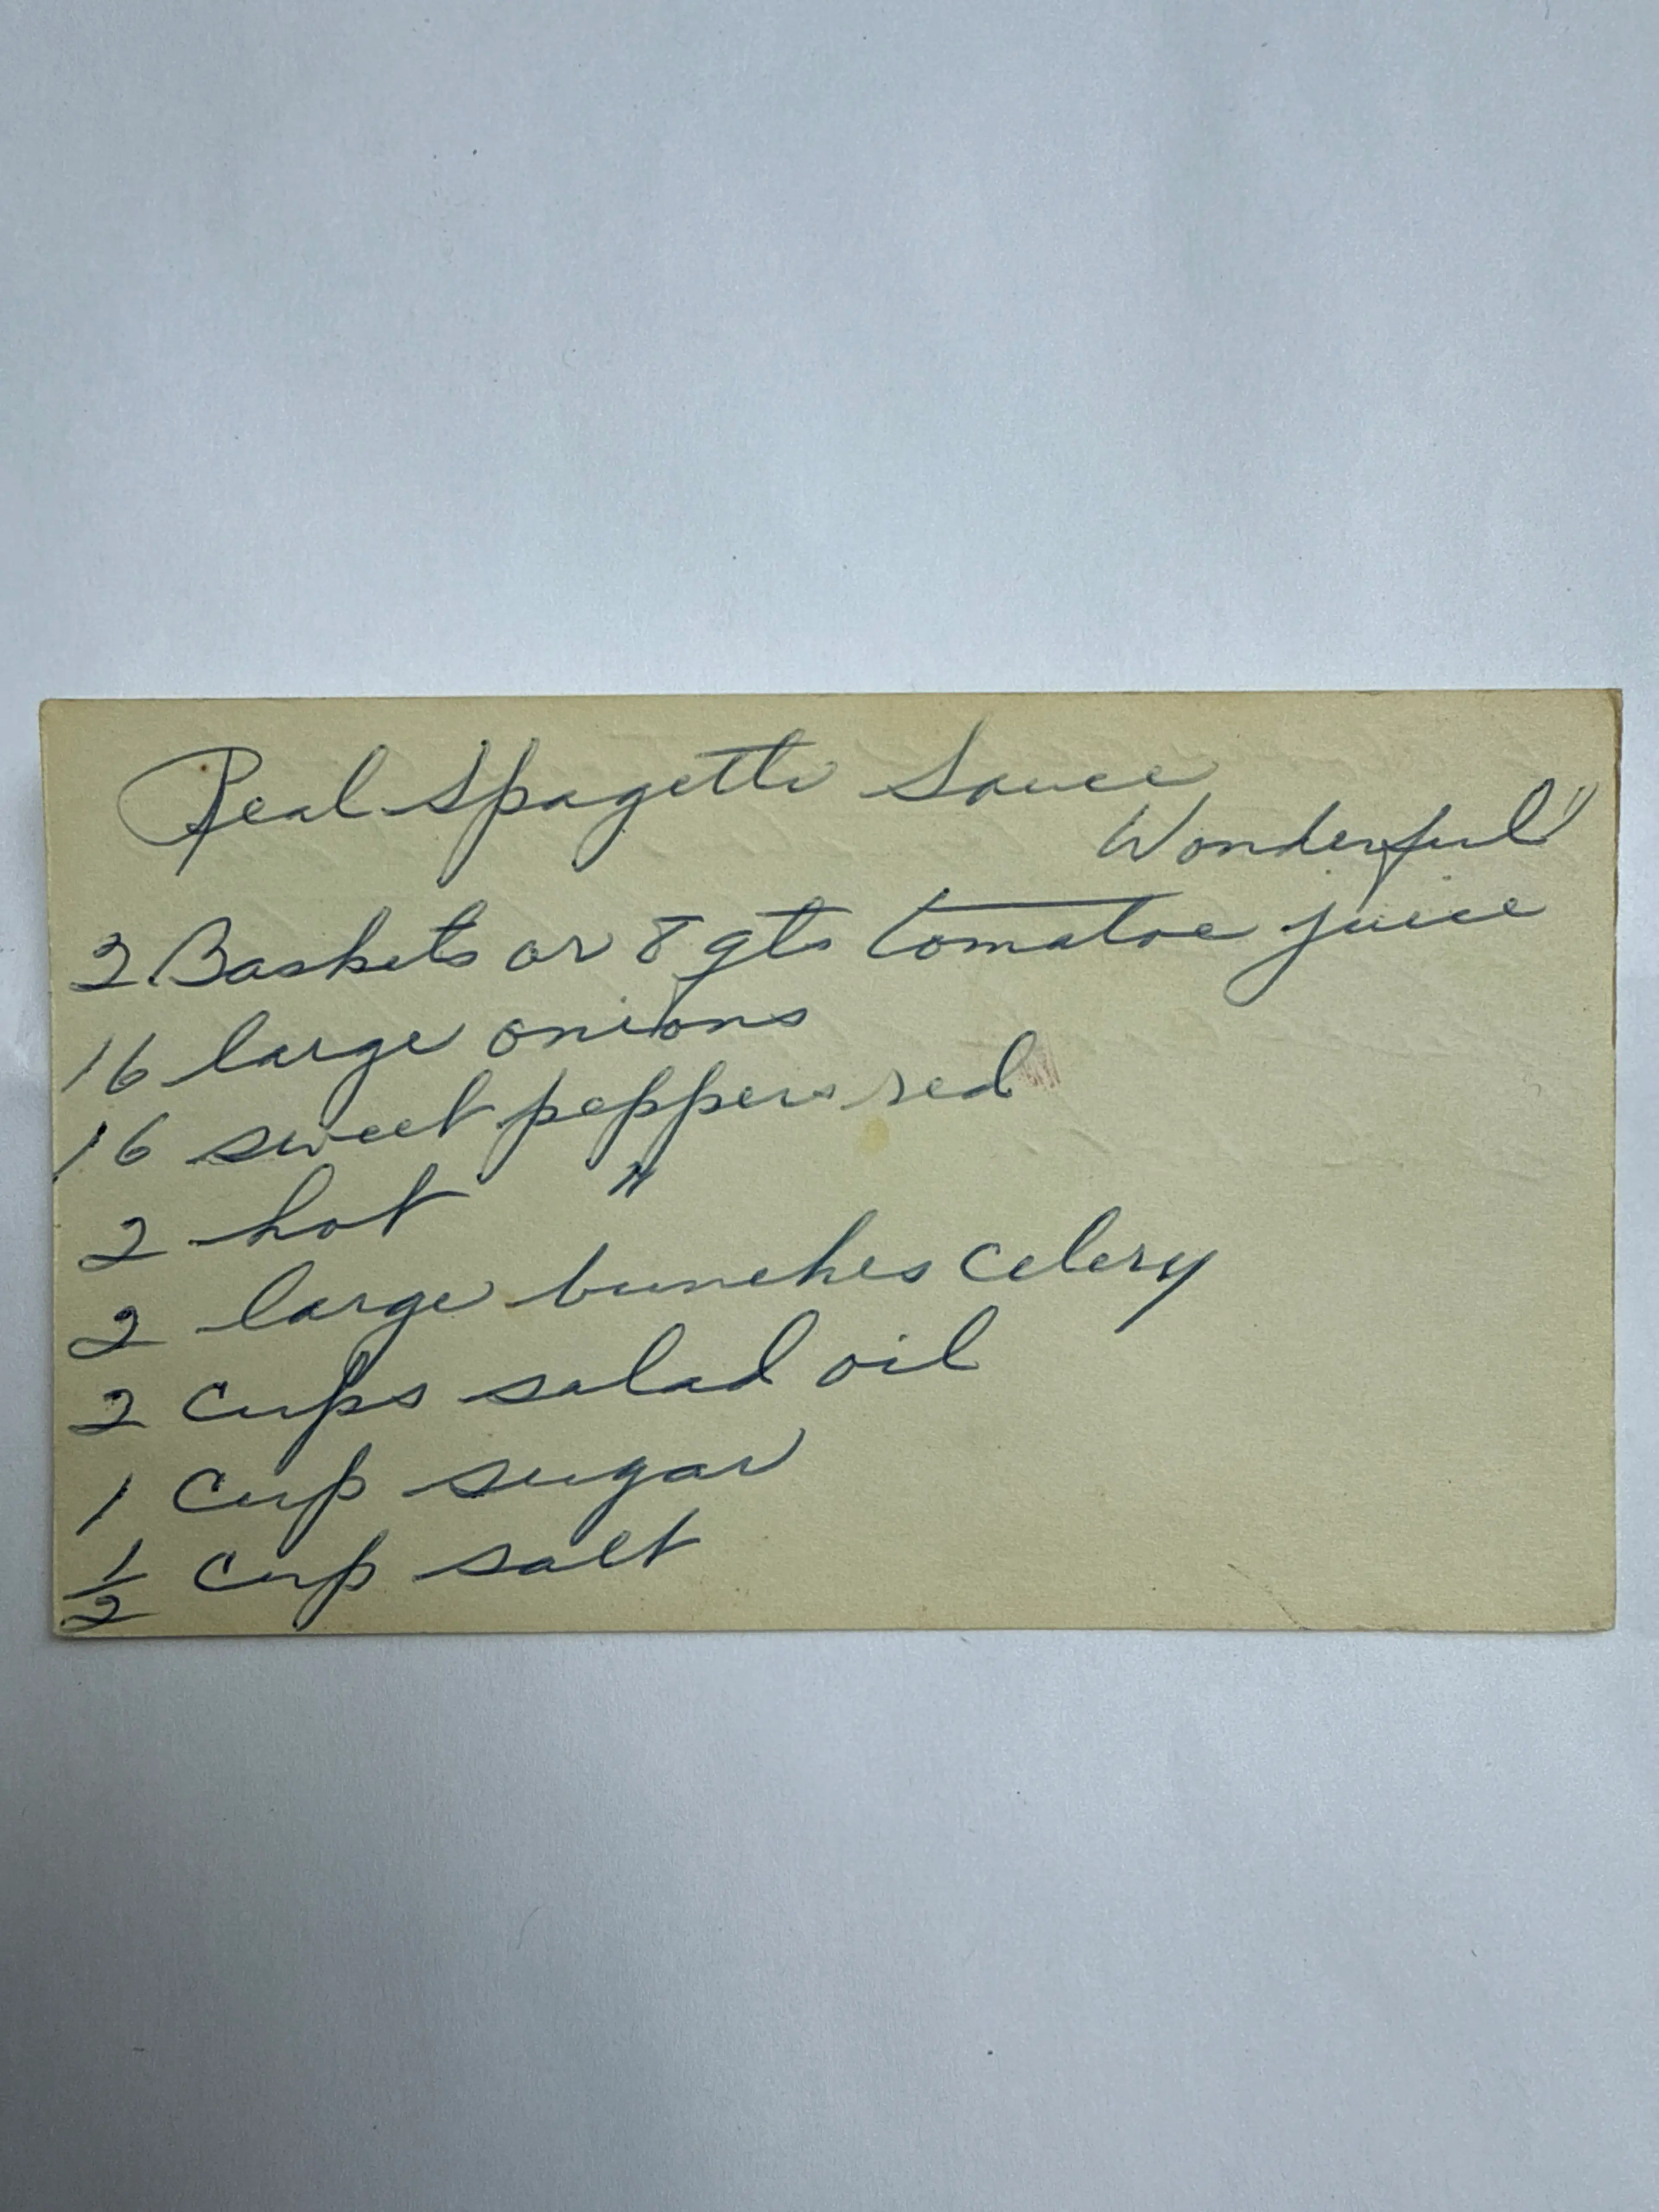 Real Spagetti Sauce
Wonderful!
2 Baskets or 8 qts tomatoe juice
16 large onions
16 sweet peppers red
2 hot "
2 large bunches celery
2 cups salad oil
1 cup sugar
1/2 cup salt